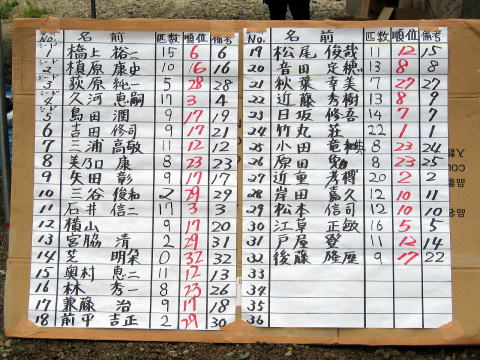 No. 名前 匹数 順位 備考
シード 1 橋上 裕二 15 6 6
シード 2 槙原 康史 10 16 16
シード 3 荻原 純一 5 28 28
シード 4 久河 恵嗣 17 3 4
シード 5 島田 潤 9 17 19
6 吉田 修司 9 17 21
7 三浦 高敏 11 12 12
8 美乃口 康 8 23 23
9 矢田 彰 9 17 17
10 三谷 俊和 2 29 29
11 石井 信二 17 3 3
12 横山 9 17 20
13 宮脇 清 2 29 31
14 芝 明 0 32 32
15 奥村 恵二 11 12 13
16 林 秀一 8 23 26
17 兼藤 治 9 17 18
18 前中 吉正 2 29 30
No. 名前 匹数 順位 備考
19 松尾 俊哉 11 12 15
20 音田 定穂 13 8 8
21 秋葉 幸美 7 27 27
22 近藤 秀樹 13 8 9
23 日坂 修吾 14 7 7
24 竹丸 荘 22 1 1
25 小田 竜 8 23 24
26 原田 8 23 25
27 近重 孝 20 2 2
28 岸田 嘉久 12 10 11
29 松本 信司 12 10 10
30 江草 正敏 16 5 5
31 戸屋 登 11 12 14
32 後藤 隆 9 17 22
33
34
35
36